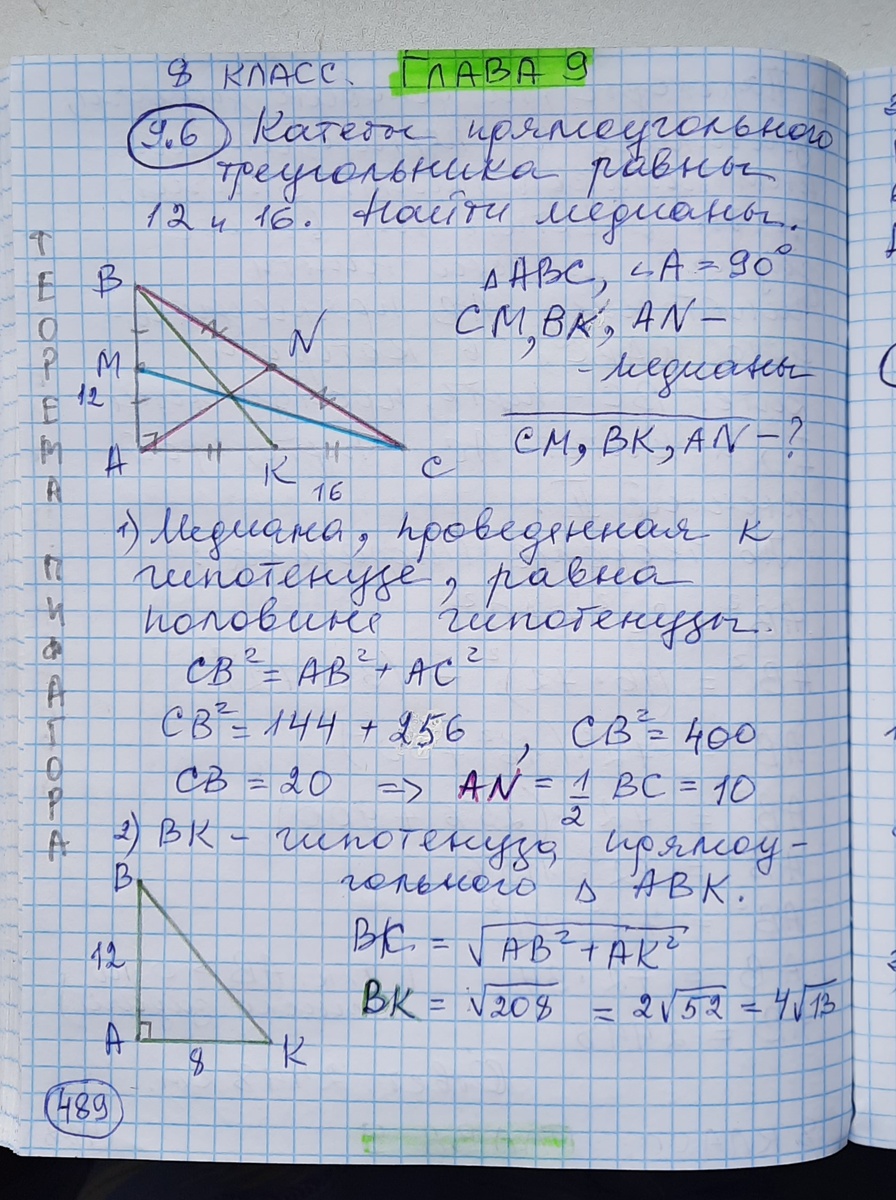 8 КЛАСС. ГЛАВА 9
9.6 Катеты прямоугольного
треугольника равны
12 и 16. Найти медианы.
ТЕОРЕМА ПИФАГОРА
△ABC, ∠A = 90°
CM, BK, AN –
– медианы
CM, BK, AN – ?
B
N
M
12
A
K
16
C
1) Медиана, проведенная к
гипотенузе, равна
половине гипотенузы.
CB² = AB² + AC²
CB² = 144 + 256, CB² = 400
CB = 20 => AN = 1/2 BC = 10
2) BK – гипотенуза прямоу-
гольного △ ABK.
B
12
A
8
K
BK = √(AB² + AK²)
BK = √208 = 2√52 = 4√13
489